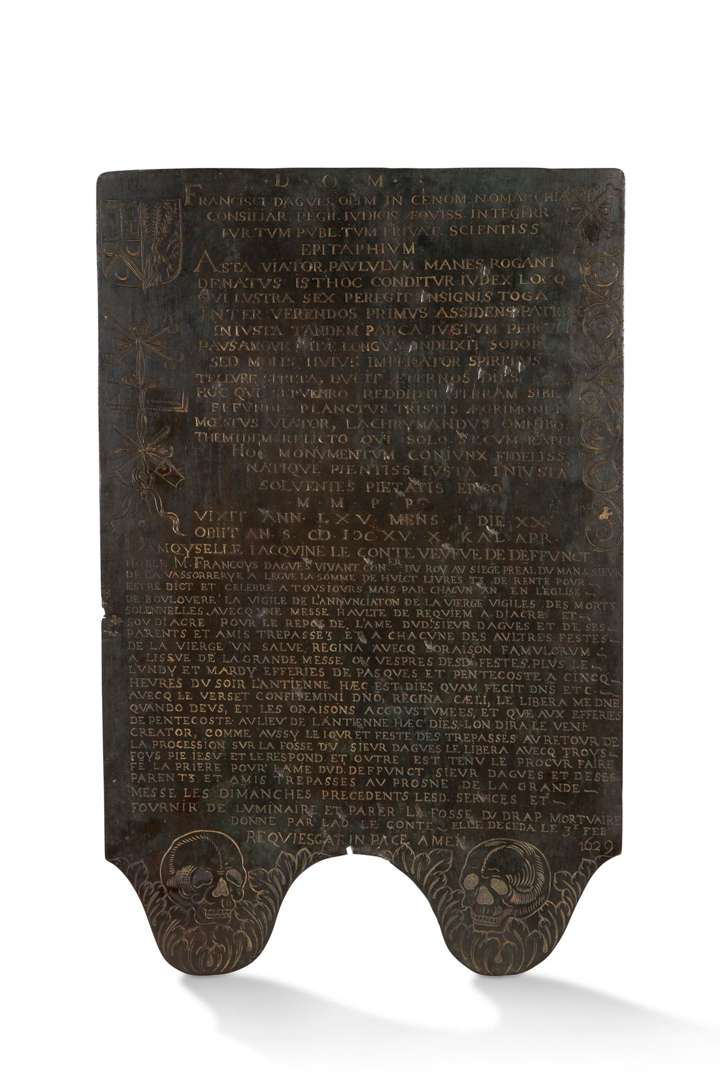 D · O · M ·
FRANCISCI DAGVES OLIM IN CENOM. NOMARCHIA
CONSILIAR. REGII, IVDICIS ÆQVISS. INTEGERR
IVR. TVM PVBL. TVM PRIVAT. SCIENTISS
EPITAPHIVM
ASTA VIATOR, PAVLVLVM MANES ROGANT
DENATVS ISTHOC CONDITVR IVDEX LOCO
QVI LVSTRA SEX PEREGIT INSIGNIS TOGA
INTER VERENDOS PRIMVS ASSIDENS PATRES
INIVSTA TANDEM PARCA IVSTVM
LONGVM
SED MOLIS HVIVS IMPERATOR SPIRITVS
TELLVRE SPRETA, DVCIT ÆTERNOS DIES
HOC QVI SEPVLCHRO REDDIDIT TERRAM SIBI
PLANCTVS TRISTIS ÆGRIMONIÆ
MŒSTVS VIATOR, LACHRYMANDVS OMNIBVS
THEMIDEM RELICTO QVI SOLO SECVM RAPIT
HOC MONVMENTVM CONIVNX FIDELISS
NATIQVE PIENTISS IVSTA INIVSTA
SOLVENTES PIETATIS ERGO
M · M · P P
VIXIT ANN · LXV · MENS · I · DIE · XX ·
OBIIT AN. S. CIƆ · IƆC XV · X · KAL · APR ·
DAMOYSELLE IACQVINE LE CONTE VEVFVE DE DEFFVNCT
NOBLE M. FRANCOYS DAGVES VIVANT CONER DV ROY AV SIEGE PREAL DV MANS, SIEVR
DE LA VASSORRERYE A LEGVE LA SOMME DE HVICT LIVRES TZ DE RENTE POVR
ESTRE DICT ET CELEBRE A TOVSIOVRS MAIS PAR CHACVN AN EN L'EGLISE
DE LA VIGILE DE L'ANNVNCIATON DE LA VIERGE VIGILES DES MORTS
SOLENNELLES AVECQ VNE MESSE HAVLTE DE REQVIEM A DIACRE ET
SOVDIACRE POVR LE REPOS DE L'AME DVD. SIEVR DAGVES ET DE SES
PARENTS ET AMIS TREPASSEZ ET A CHACVNE DES AVLTRES FESTES
DE LA VIERGE VN SALVE, REGINA AVECQ L'ORAISON FAMVLORVM
A LISSVE DE LA GRANDE MESSE OV VESPRES DESD. FESTES, PLVS LE
LVNDY ET MARDY EFFERIES DE PASQVES ET PENTECOSTE A CINCQ
HEVRES DV SOIR L'ANTIENNE HÆC EST DIES QVAM FECIT DNS ETC
AVECQ LE VERSET CONFITEMINI DNO, REGINA CÆLI, LE LIBERA ME DNE
QVANDO DEVS, ET LES ORAISONS ACCOVSTVMEES, ET QVE AVX EFFERIES
DE PENTECOSTE AV LIEV DE LANTIENNE HÆC DIES, LON DIRA LE VENI
CREATOR, COMME AVSSY LE IOVR ET FESTE DES TREPASSES AV RETOVR DE
LA PROCESSION SVR LA FOSSE DV SIEVR DAGVES LE LIBERA AVECQ TROYS
FOYS PIE IESV ET LE RESPOND. ET OVTRE EST TENV LE PROCVR FAIRE
FE LA PRIERE POVR L'AME DVD. DEFFVNCT SIEVR DAGVES ET DE SES
PARENTZ ET AMIS TREPASSES AV PROSNE DE LA GRANDE
MESSE LES DIMANCHES PRECEDENTS LESD. SERVICES ET
FOVRNIR DE LVMINAIRE ET PARER LA FOSSE DV DRAP MORTVAIRE
DONNE PAR LAD. LE CONTE ELLE DECEDA LE 3E FEB
REQVIESCAT IN PACE AMEN 1629